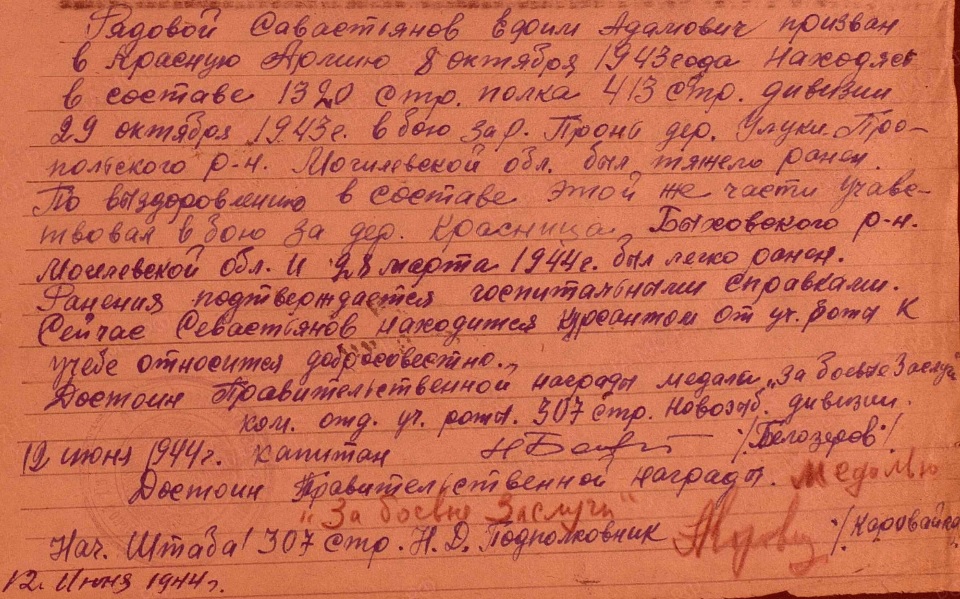 Рядовой Савастьянов Ефим Адамович призван
в Красную Армию 8 октября 1943 года Находясь
в составе 1320 стр. полка 413 стр. дивизии
29 октября 1943 г. в бою за р. Проня дер. Улуки Про-
польского р-н. Могилевской обл. был тяжело ранен.
По выздоровлению в составе этой же части учавс-
твовал в бою за дер. Красница, Быховского р-н.
Могилевской обл. и 28 марта 1944 г. был легко ранен.
Ранения подтверждается госпитальными справками.
Сейчас Севастьянов находится курсантом от уч. роты К
учебе относится добросовестно.
Достоин Правительственной награды медали „За боевые Заслуги
ком. отд. уч. роты. 307 стр. Новозыб. дивизии.
12 июня 1944 г. капитан /Белозеров/
Достоин Правительственной награды. Медалью
„За боевые Заслуги"
Нач. Штаба 307 стр. Н. Д. Подполковник /Каровайко
12 Июня 1944 г.